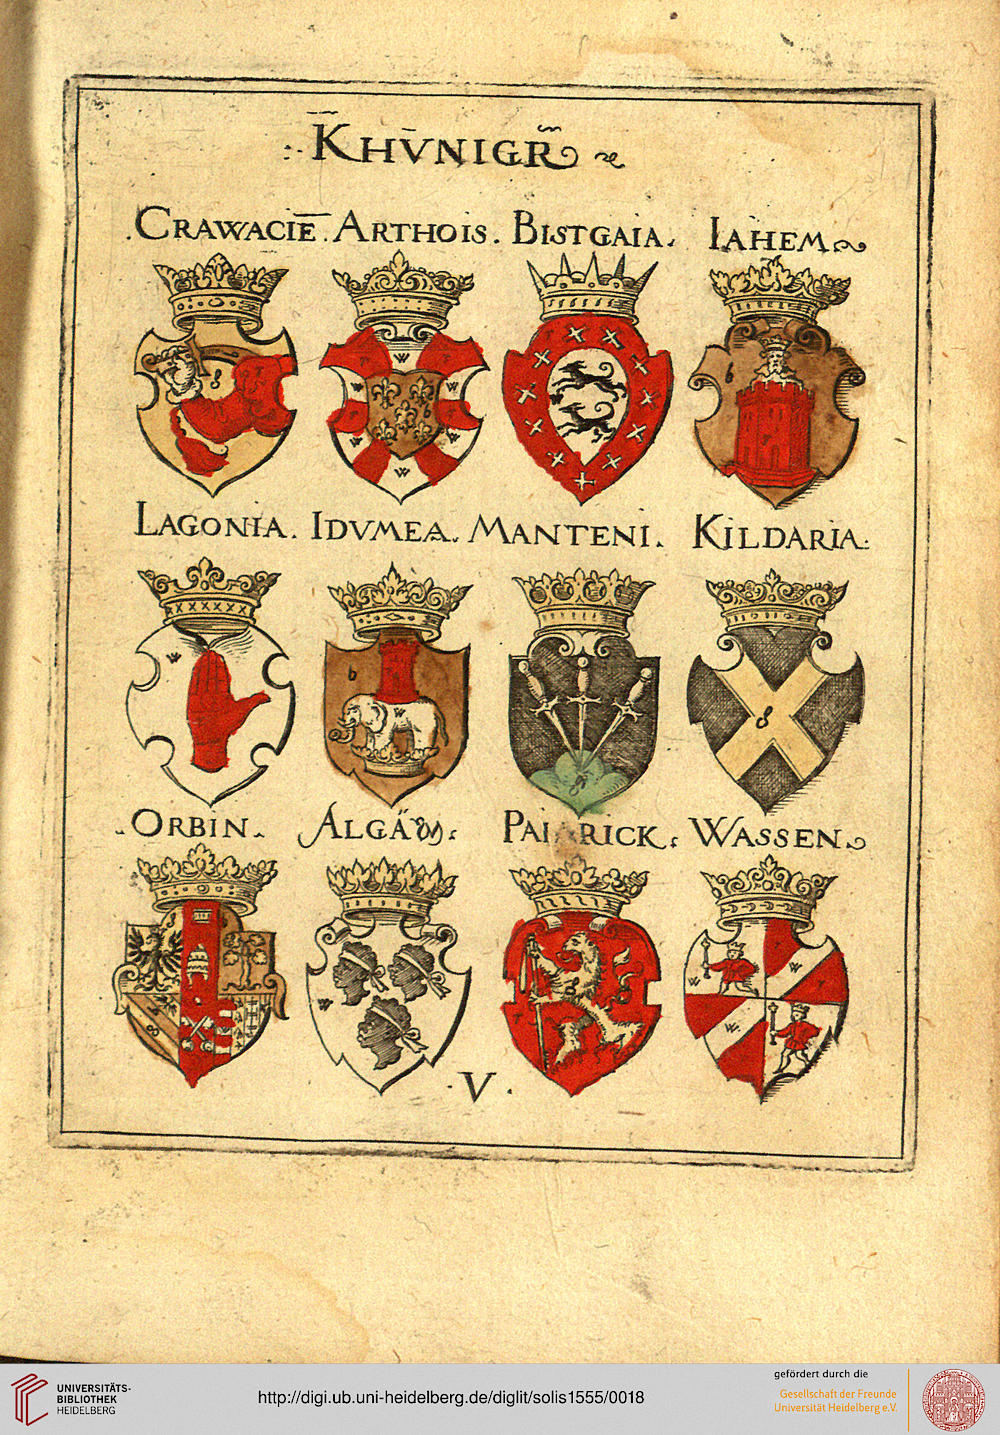 KHVNIGR
CRAWACIĒ. ARTHOIS. BISTGAIA. IAHEM
LAGONIA. IDVMEA. MANTENI. KILDARIA.
ORBIN. PAI RICK: WASSEN
V.
UNIVERSITÄTS-
BIBLIOTHEK
HEIDELBERG
http://digi.ub.uni-heidelberg.de/diglit/solis1555/0018
gefördert durch die
Gesellschaft der Freunde
Universität Heidelberg e.V.